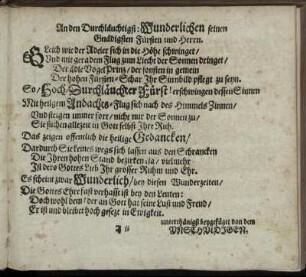 An den Durchläuchtigst: Wunderlichen seinen
Gnädigsten Fürsten und Herrn.
Gleich wie der Adeler sich in die Höhe schwinget/
Und mit geradem flug zum Liecht der Sonnen dringet/
Der Vogel Prinz/ der sonsten in gemein
Der hohen Fürsten-Schar Ihr Sinnbild pflegt zu seyn.
So/ Hoch-Durchläuchter Fürst! erschwingen dessen Sinnen
Mit heilgem Andachts-Flug sich nach des Himmels Zinnen/
Und steigen immer fort/ nicht nur der Sonnen zu/
Sie suchen allezeit in Gott selbst Ihre Ruh.
Das zeigen offentlich die heilige Gedancken/
Dardurch Sie keines wegs sich lassen aus den Schrancken
Die Ihren hohen Stand bezircken/ ja/ viel mehr
Ist ders Gottes Lieb Ihr grosser Ruhm und Ehr.
Es scheint zwar Wunderlich/ bey diesen Wunderzeiten/
Die Gottes Ehr fast verhasst ist bey den Leuten:
Doch wohl dem/ der an Gott hat seine Lust und Freud/
Er ist und bleibet hoch gesezt in Ewigkeit.
unterthänigst beygefüget von dem
UNSCHULDIGEN.